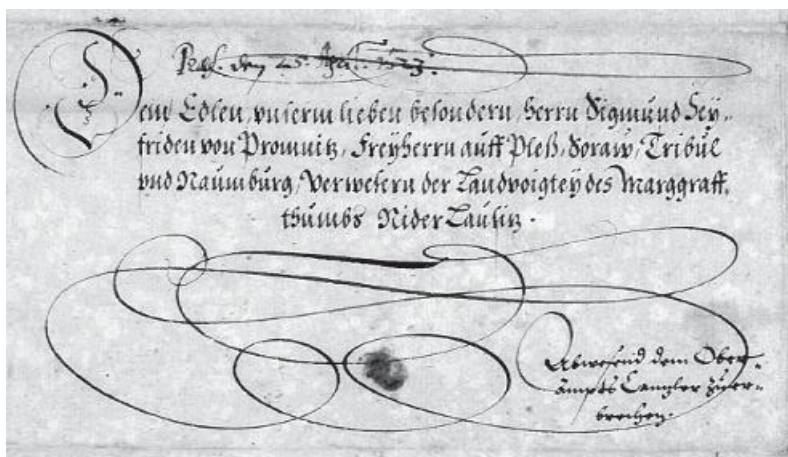 den 25. April.
Dem Edlen, vnserm lieben besondern, Herrn Sigmund Sey„
friden von Promnitz, Freyherrn auff Pleß, Soraw, Tribul
vnd Naumburg, Verwesern der Landvoigtey des Marggraff„
thumbs Nider Lausitz.
Abwesend dem Ober„
ampts Cantzler zu er„
brechen.